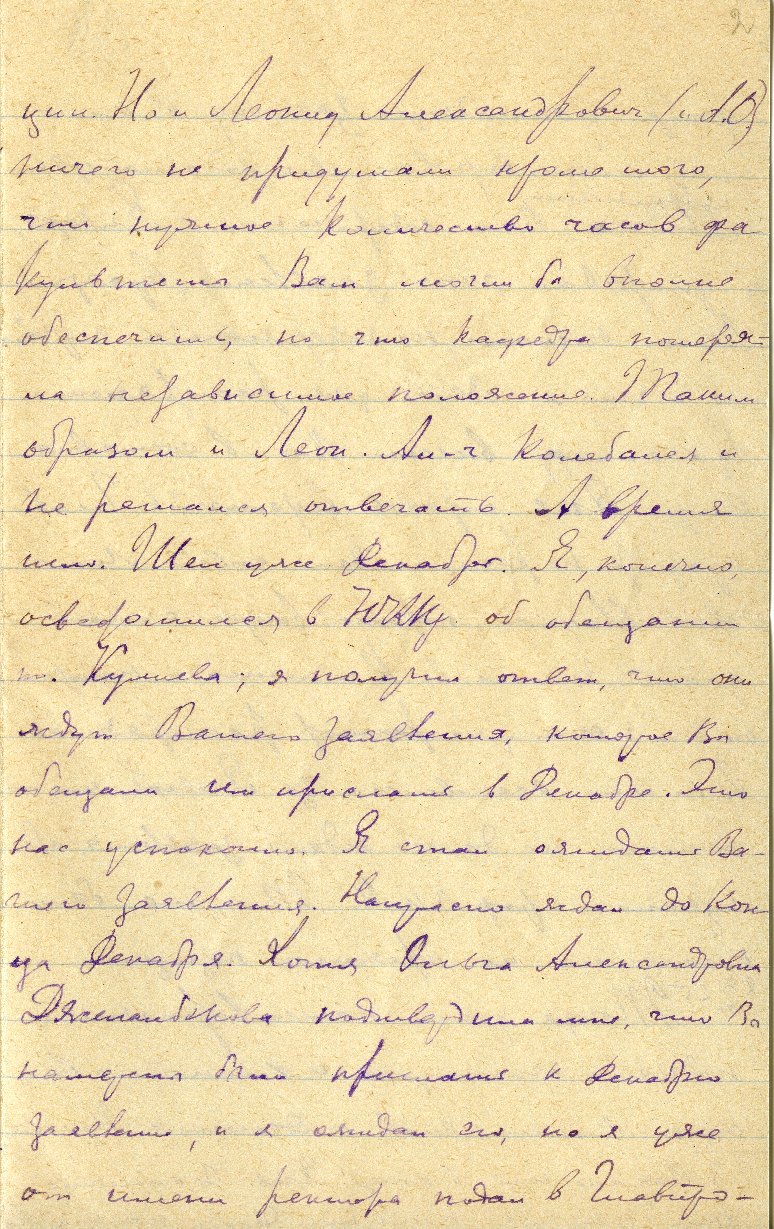 2
ции. Но и Леонид Александрович (и А.О)
ничего не придумали кроме того,
что нужное количество часов фа
культета Вам могли бы вполне
обеспечить, но что кафедра потеря-
ла независимое положение. Таким
образом и Леон. Ал-ч колебался и
не решался отвечать. А время
шло. Шел уже Декабрь. Я, конечно,
осведомился в об обещании
т. ; я получил ответ, что они
ждут Вашего заявления, которое Вы
обещали им прислать в Декабре. Это
нас успокоило. Я стал ожидать Ва-
шего заявления. Напрасно ждал до кон
ца Декабря. Хотя Ольга Александровна
подтвердила мне, что Вы
намерены были прислать к Декабрю
заявление, и я ожидал его, но я уже
от имени ректора подал в Главпро-